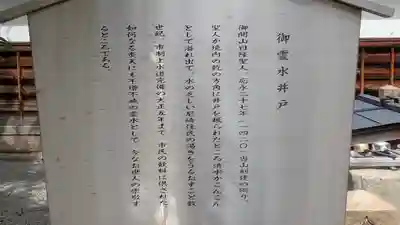 御霊水井戸
御開山日隆聖人、応永二十七年(一四二〇)当山創建の砌り、
聖人が境内の乾の方角に井戸を掘られたところ清水がこんこん
として湧れ出て、水の乏しい尼崎住民の渇きをうるおすこと数
世紀、市制上水道完備の大正五年まで、市民の飲料に供された
如何なる旱天にも不増不減の霊水として、今なお世人の珍重す
るところである。